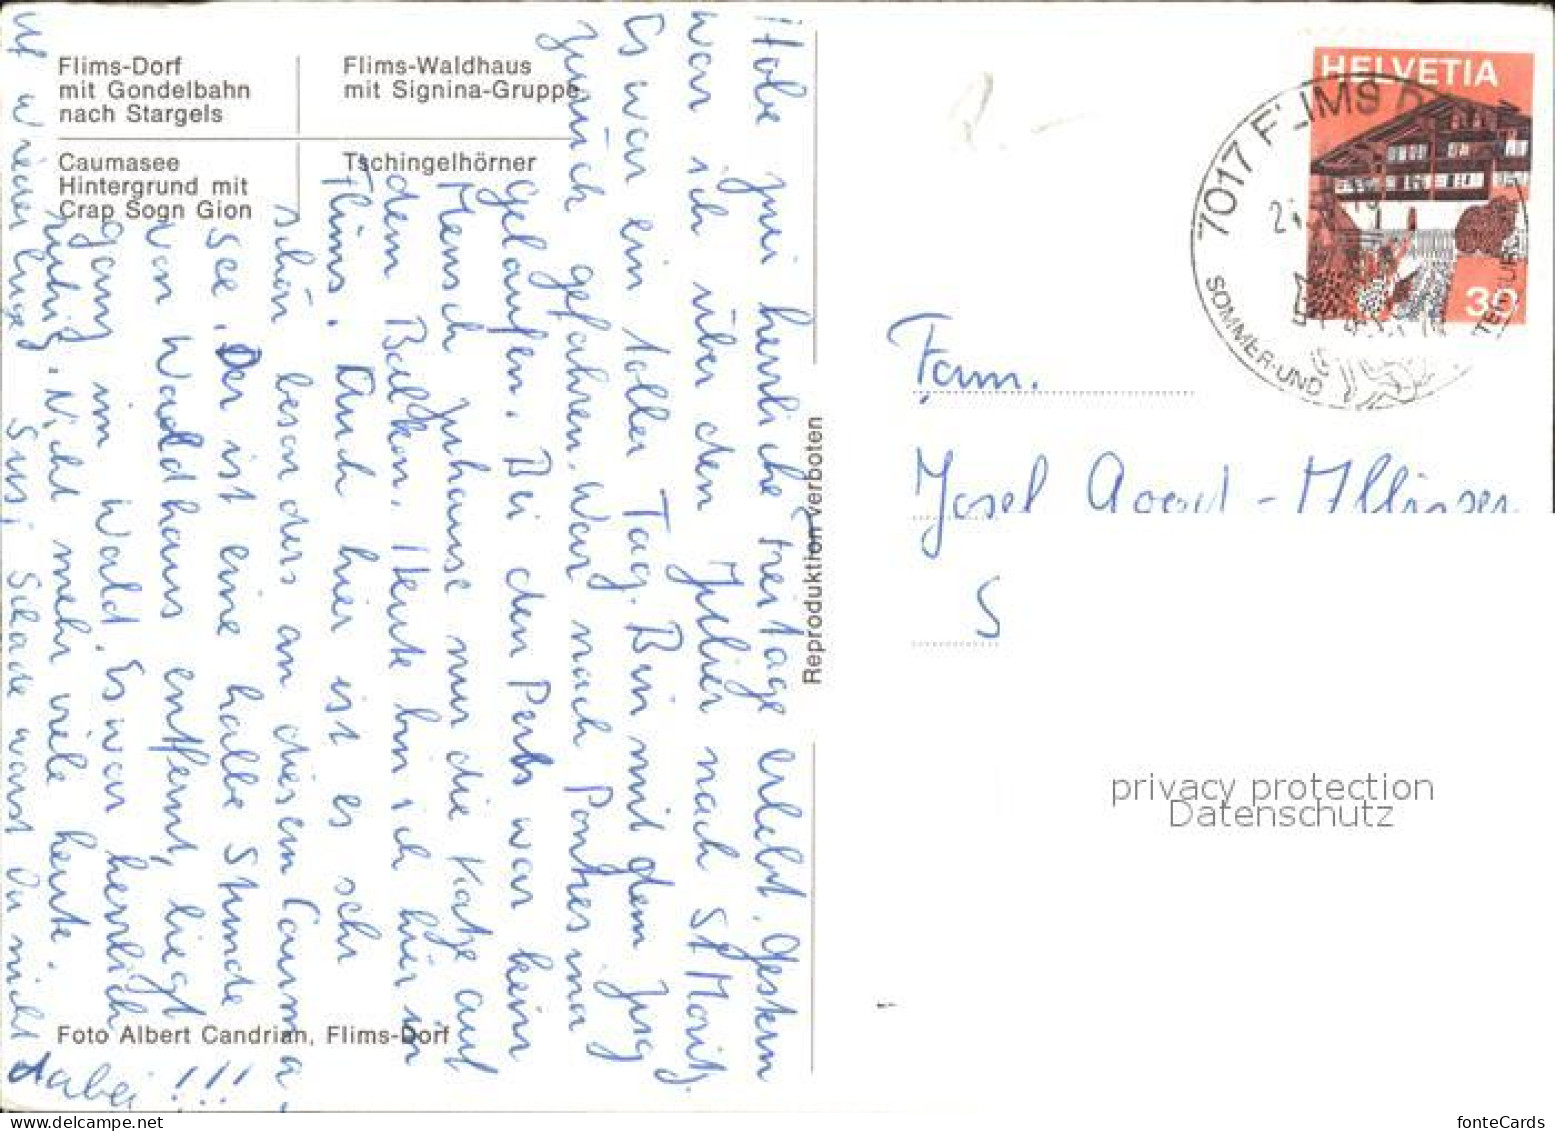 Flims-Dorf
mit Gondelbahn
nach Stargels
Flims-Waldhaus
mit Signina-Gruppe
Caumasee
Hintergrund mit
Crap Sogn Gion
Tschingelhörner
Habe zwei herrliche Freitage erlebt. Gestern
war ich über den Julier nach St Moritz.
Es war ein toller Tag. Bin mit dem
zurück gefahren. War nach Pontresina
gelaufen. Bei den Pens war kein
Mensch zuhause nur die Katze auf
dem Balkon. Heute bin ich hier in
Flims. Auch hier ist es sehr
schön besonders an diesem Cauma-
see. Der ist eine halbe Stunde
von Waldhaus entfernt, liegt
ganz im Wald. Es war herrlich
ruhig. Nicht mehr viele heute.
Auf wiederluege Susi Schade warst du nicht
dabei !!!
Foto Albert Candrian, Flims-Dorf
Reproduktion verboten
HELVETIA
30
7017 FLIMS D
SOMMER-UND
Fam.
Josef
S
privacy protection
Datenschutz
fonteCards